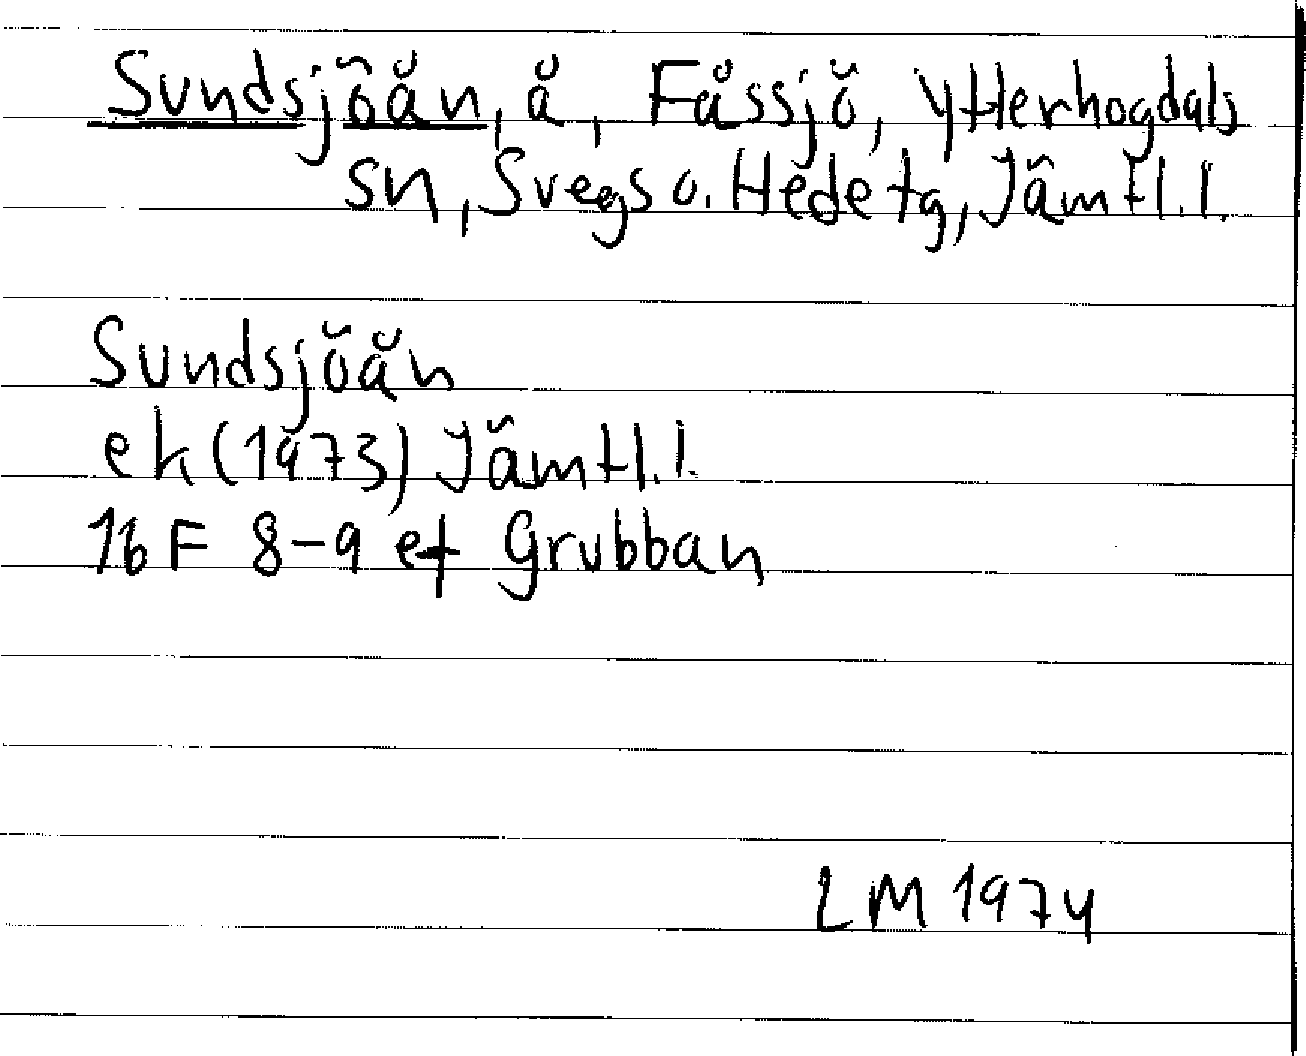 Sundsjöån, å, Fåssjö, Ytterhogdals
sn, Svegs o. Hede tg, Jämtl. l.
Sundsjöån
ek (1973) Jämtl. l.
16 F 8-9 ef Grubban
LM 1974